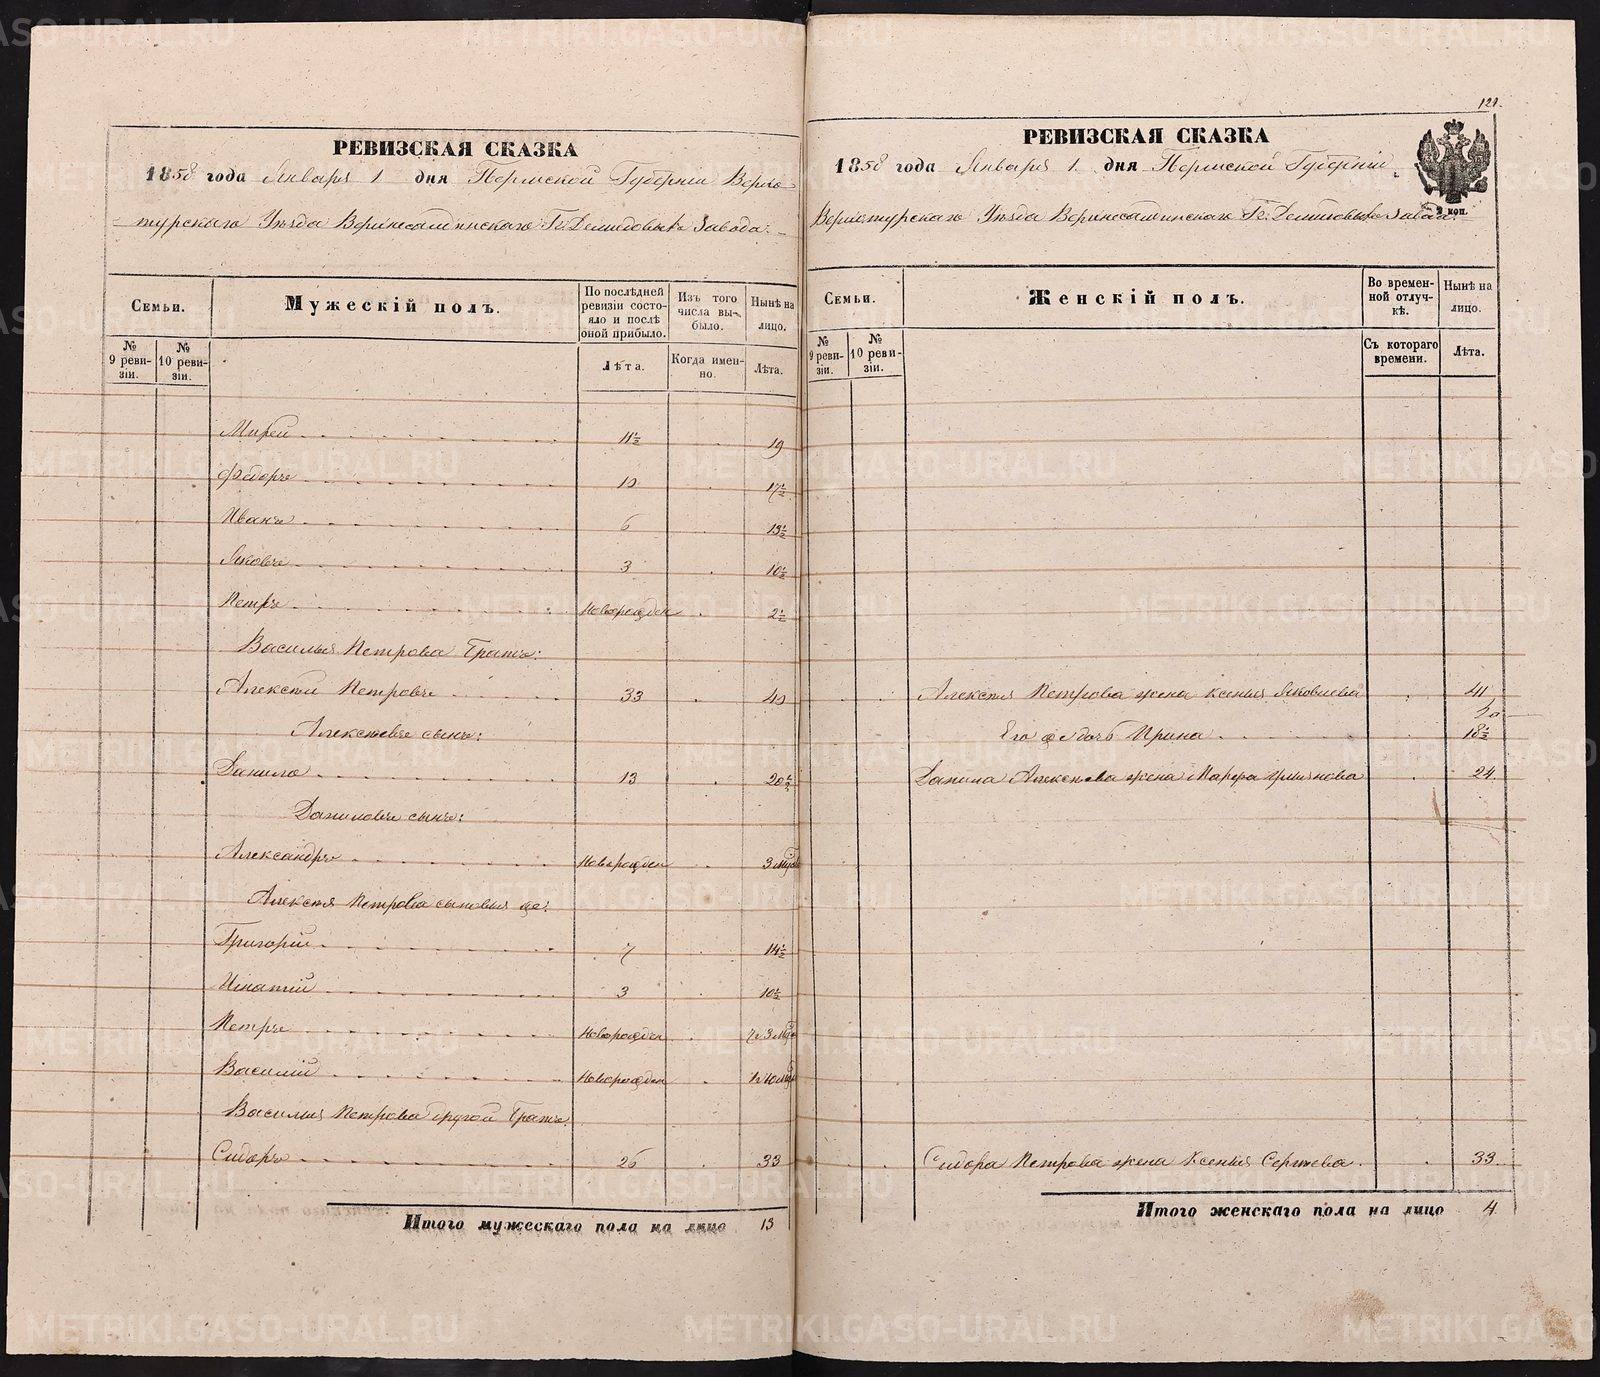 121.
РЕВИЗСКАЯ СКАЗКА
1858 года Января 1 дня Пермской Губерніи Верхо-
турскаго Уѣзда Верхнесалдинскаго Гг. Демидовыхъ Завода.
Семьи.
Мужескій полъ.
По послѣдней ревизіи состояло и послѣ оной прибыло.
Изъ того числа выбыло.
Нынѣ на лицо.
№ 9 ревизіи.
№ 10 ревизіи.
Лѣта.
Когда именно.
Лѣта.
11½ 19
Ѳедоръ 10 17½
Иванъ 6 13½
Яковъ 3 10½
Петръ Новорожден 2½
Василья Петрова братъ:
Алексѣй Петровъ 33 40
Алексѣевъ сынъ:
Данило 13 20½
Даниловъ сынъ:
Александръ Новорожден 3
Алексѣя Петрова сыновья же:
Григорій 7 14½
Игнатій 3 10½
Петръ Новорожден
Василій Новорожден
Василья Петрова другой братъ:
Сидоръ 26 33
Итого мужескаго пола на лицо 13
РЕВИЗСКАЯ СКАЗКА
1858 года Января 1 дня Пермской Губерніи
2 коп.
Верхотурскаго Уѣзда Верхнесалдинскаго Гг. Демидовыхъ Завода.
Семьи.
Женскій полъ.
Во временной отлучкѣ.
Нынѣ на лицо.
№ 9 ревизіи.
№ 10 ревизіи.
Съ котораго времени.
Лѣта.
Алексѣя Петрова жена Ксенья Яковлева 41
Его же дочь Ирина 18½
Данила Алексѣева жена Марфа 24
Сидора Петрова жена Ксенья Сергѣева 33
Итого женскаго пола на лицо 4
METRIKI.GASO-URAL.RU